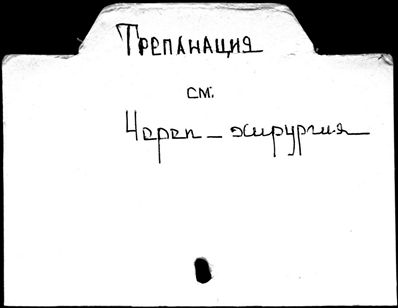 Трепанация
см.
Череп - хирургия